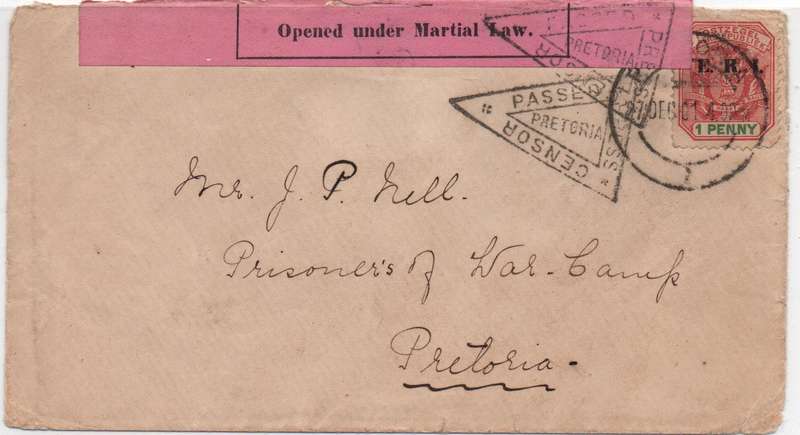 Opened under Martial Law.
PASSED
PRETORIA
CENSOR
PRESS
PASSED
PRETORIA
CENSOR
POSTZEGEL
E. R. I.
27 DEC 01
1 PENNY
Mr. J. P. Nell.
Prisoners of War-Camp
Pretoria.